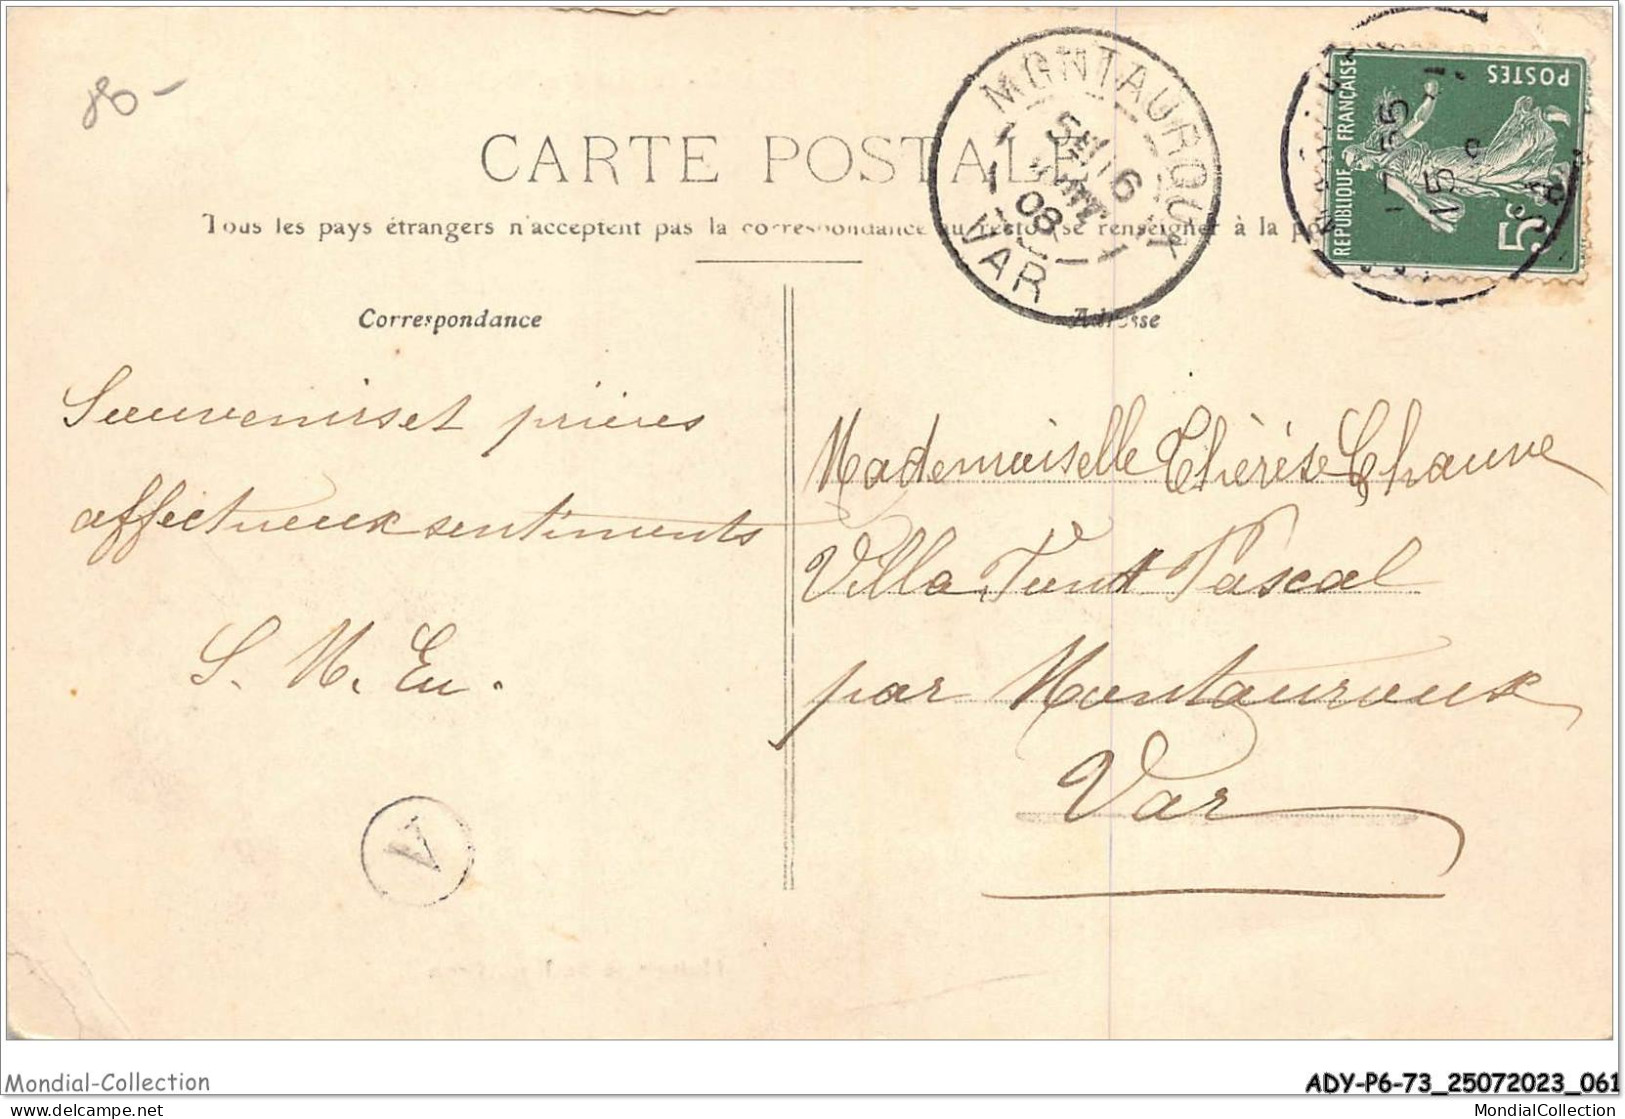 CARTE POSTALE
Tous les pays étrangers n'acceptent pas la correspondance au recto, se renseigner à la
Correspondance
Adresse
MONTAUROUX
6
08
VAR
REPUBLIQUE FRANÇAISE
POSTES
5c
Souvenirs et prières
affectueux sentiments
S. M. Eu.
Mademoiselle Thérèse Chauve
Villa Pascal
par Montauroux
Var
V
Mondial-Collection
ADY-P6-73_25072023_061
www.delcampe.net
MondialCollection